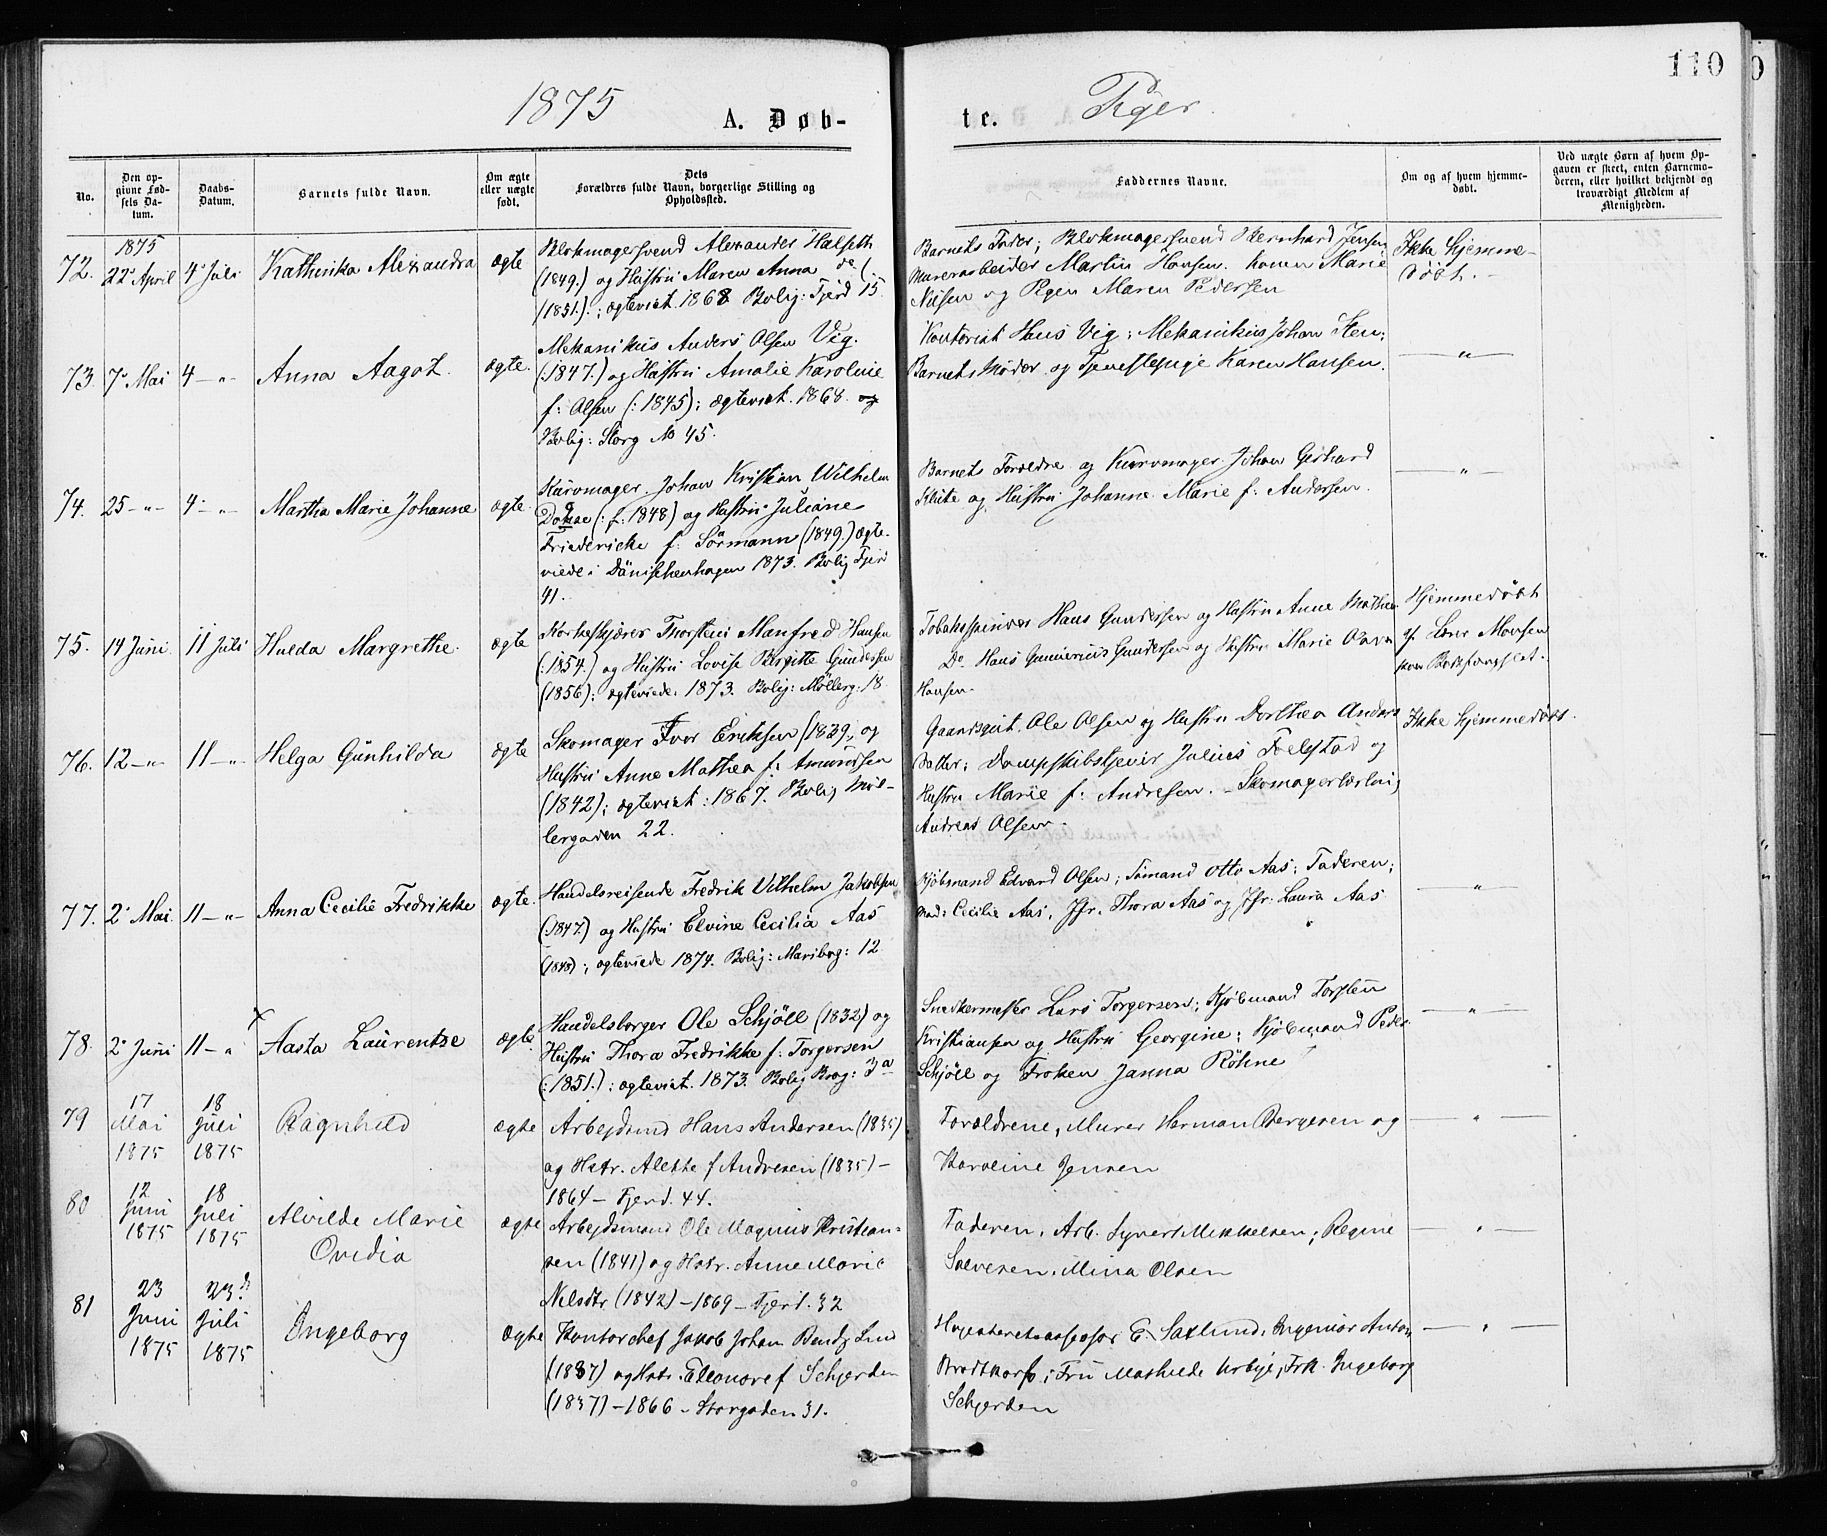 110
1875
A. Døb-
te.
Piger.
No.
Den op-
givne Fød-
sels Da-
tum.
Daabs-
Datum.
Barnets fulde Navn.
Om ægte
eller uægte
født.
Dets
Forældres fulde Navn, borgerlige Stilling og
Opholdssted.
Faddernes Navne.
Om og af hvem hjemme-
døbt.
Ved uægte Børn af hvem Op-
gaven er skeet, enten Barnemo-
deren, eller hvilket bekjendt og
troværdigt Medlem af
Menigheden.
1875
72. 22de April 4de Juli Kathinka Alexandra ægte
Blokmagersvend Alexander Halseth
(1849.) og Hustru Maren Anna
(1851.).; ægteviet. 1868 Bolig: Fjerd 15.
Barnets Fader; Blokmagersvend Bernhard Jensen
Murerarbeider Martin Hansen. Konen Marie
Nilsen og Pigen Maren Pedersen
Ikke hjemme-
døbt.
73. 7de Mai 4 -"- Anna Aagot. ægte.
Mekanikus Anders Olsen Vig.
(:1847.) og Hustru Amalie Karoline
f: Olsen (:1845); ægteviet. 1868. og
Bolig: Storg No 45.
Kontorist Hans Vig; Mekanikus Johan Sten;
Barnets Moder og Tjenestepige Karen Hansen.
-"-
74. 25 -"- 4 -"- Martha Marie Johanne ægte.
Kurvmager. Johan Kristian Wilhelm
(: f: 1848) og Hustru Juliane
Friedericke f: Sörmann (1849.) ægte-
viede i Dänischenhagen 1873. Bolig Fjerd
41.
Barnets Forældre og Kurvmager Johan Gerhard
Klute og Hustru Johanne Marie f: Andersen.
-"-
75. 14 Juni 11 Juli Hulda Margrethe. ægte
Korkeskjærer Thorstein Manfred Hansen
(:1854.) og Hustru Lovise Birgitte Gundersen
(1856); ægteviede: 1873. Bolig: Möllerg: 18.
Tobakspinner Hans Gundersen og Hustru Anne Mathea
Do. Hans Gunerius Gundersen og Hustru Marie
Hansen.
Hjemmedøbt
af
76. 12 -"- 11 -"- Helga Gunhilda ægte
Skomager Ivor Eriksen (1839, og
Hustru Anne Mathea f: Amundsen
(1842); ægteviet: 1867. Bolig Möl-
lergaden 22.
Gaardsgut. Ole Olsen og Hustru Dorthea Anders
Datter; Dampskibstjener Julius Foelstad og
Hustru Marie f: Andresen. - Skomagerlærling
Andreas Olsen.
Ikke hjemmedøbt.
77. 2de Mai 11 -"- Anna Cecilie Fredrikke ægte.
Handelsreisende Fredrik Vilhelm Jakobsen
(:1847) og Hustru Elvine Cecilia Aas
(1848); ægteviede 1874. Bolig: Maribog: 12
Kjøbmand Edvard Olsen; Sömand Otto Aas; Faderen;
Mad: Cecilie Aas, Jfr. Thora Aas og Jfr: Laura Aas
-"-
78. 2de Juni 11 -"- x Aasta Laurentze ægte.
Handelsborger Ole Schjöll (1832) og
Hustru Thora Fredrikke f: Torgersen
(:1851.); ægteviet. 1873. Bolig Brog: 3 a
Snedkermester Lars Torgersen; Kjöbmand Torsten
Kristiansen og Hustru Georgine; Kjöbmand Peder
Schjöll og Frøken Janna Röhne
-"-
79 17 Mai 1875 18 Juli 1875 Ragnhild ægte
Arbejdsmd Hans Andersen (1835)
og Hstr. Alette f Andresen (1835) -
1864 - Fjerd. 44.
Forældrene, Murer Herman Børgesen og
Karoline Jensen
-"-
80 12 Juni 1875 18 Juli 1875 Alvilde Marie
Ovidia ægte
Arbejdsmand Ole Magnus Kristian-
sen (1841) og Hstr. Anne Marie
Nelsdtr. (1842) - 1869 - Fjerd. 32
Faderen, Arb. Syvert Mikkelsen; Regine
Salvesen, Mina Olsen
-"-
81 23 Juni 1875 23de Juli 1875 Ingeborg ægte
Kontorchef Jakob Johan Bendz Lund
(1837) og Hstr. Eleonore f Schjerden
(1837) - 1866 - Storgaden 31.
Højesteretsassessor E. Saxlund, Ingeniør Anton
Brodtkorb; Fru Mathilde Urbye, Frk. Ingeborg
Schjerden
-"-